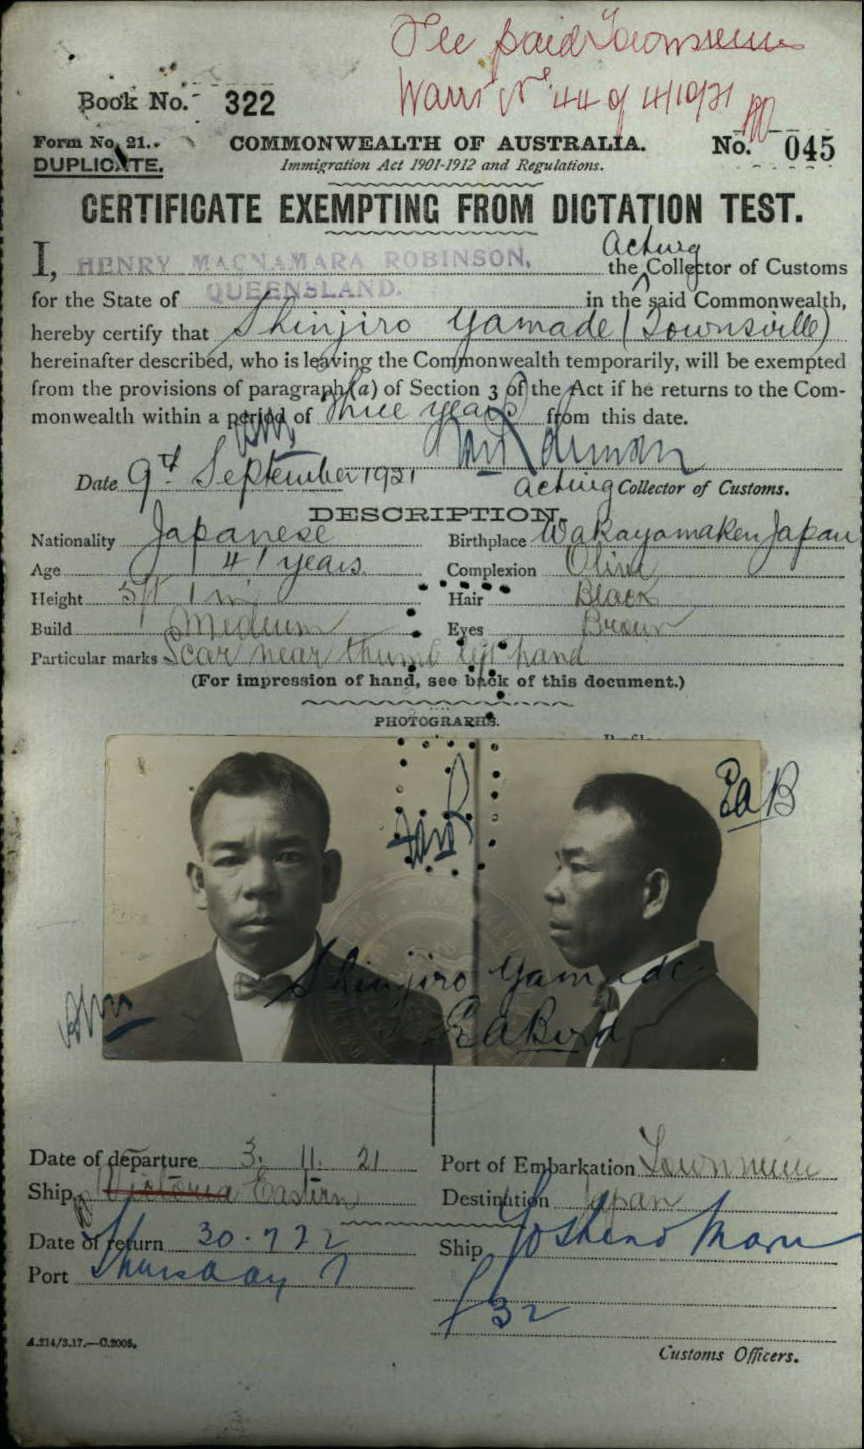 Fee paid Townsville
Warrt No 44 of 4/10/21
Book No. 322
Form No. 21. COMMONWEALTH OF AUSTRALIA. No. 045
DUPLICATE. Immigration Act 1901-1912 and Regulations.
CERTIFICATE EXEMPTING FROM DICTATION TEST.
Acting
I, HENRY MACNAMARA ROBINSON, the Collector of Customs
for the State of QUEENSLAND. in the said Commonwealth,
hereby certify that Shinjiro Yamade (Townsville)
hereinafter described, who is leaving the Commonwealth temporarily, will be exempted
from the provisions of paragraph (a) of Section 3 of the Act if he returns to the Com-
monwealth within a period of three years from this date.
Date 9th September 1921 Acting Collector of Customs.
DESCRIPTION.
Nationality Japanese Birthplace Wakayamaken Japan
Age 41 years. Complexion Olive
Height 5ft 1in Hair Black
Build Medium Eyes Brown
Particular marks Scar near thumb left hand
(For impression of hand, see back of this document.)
PHOTOGRAPHS.
EaB
Shinjiro Yamade
EABird
Date of departure 3. 11. 21 Port of Embarkation Townsville
Ship Victoria Eastern Destination Japan
Date of return 30.7.22 Ship Yoshino Maru
Port Thursday I
32
A.214/3.17.—C.2005.
Customs Officers.